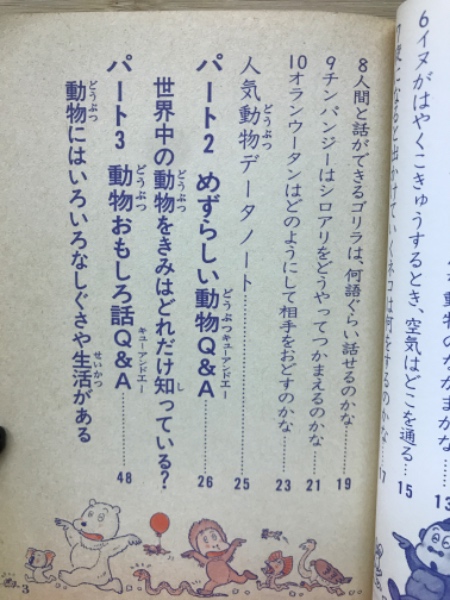 6 イヌがはやくこきゅうするとき、空気はどこを通る… 15
17
8 人間と話ができるゴリラは、何語ぐらい話せるのかな…… 19
9 チンパンジーはシロアリをどうやってつかまえるのかな…… 21
10 オランウータンはどのようにして相手をおどすのかな…… 23
人気動物データノート…… 25
パート2 めずらしい動物Q&A…… 26
世界中の動物をきみはどれだけ知っている?
パート3 動物おもしろ話Q&A…… 48
動物にはいろいろなしぐさや生活がある
3